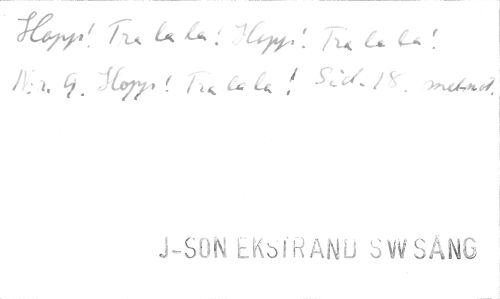 Hopp! Tra la la! Hopp! Tra la la!
Nr. 9. Hopp! Tra la la! Sid. 18. mel. not.
J-SON EKSTRAND SW SÅNG